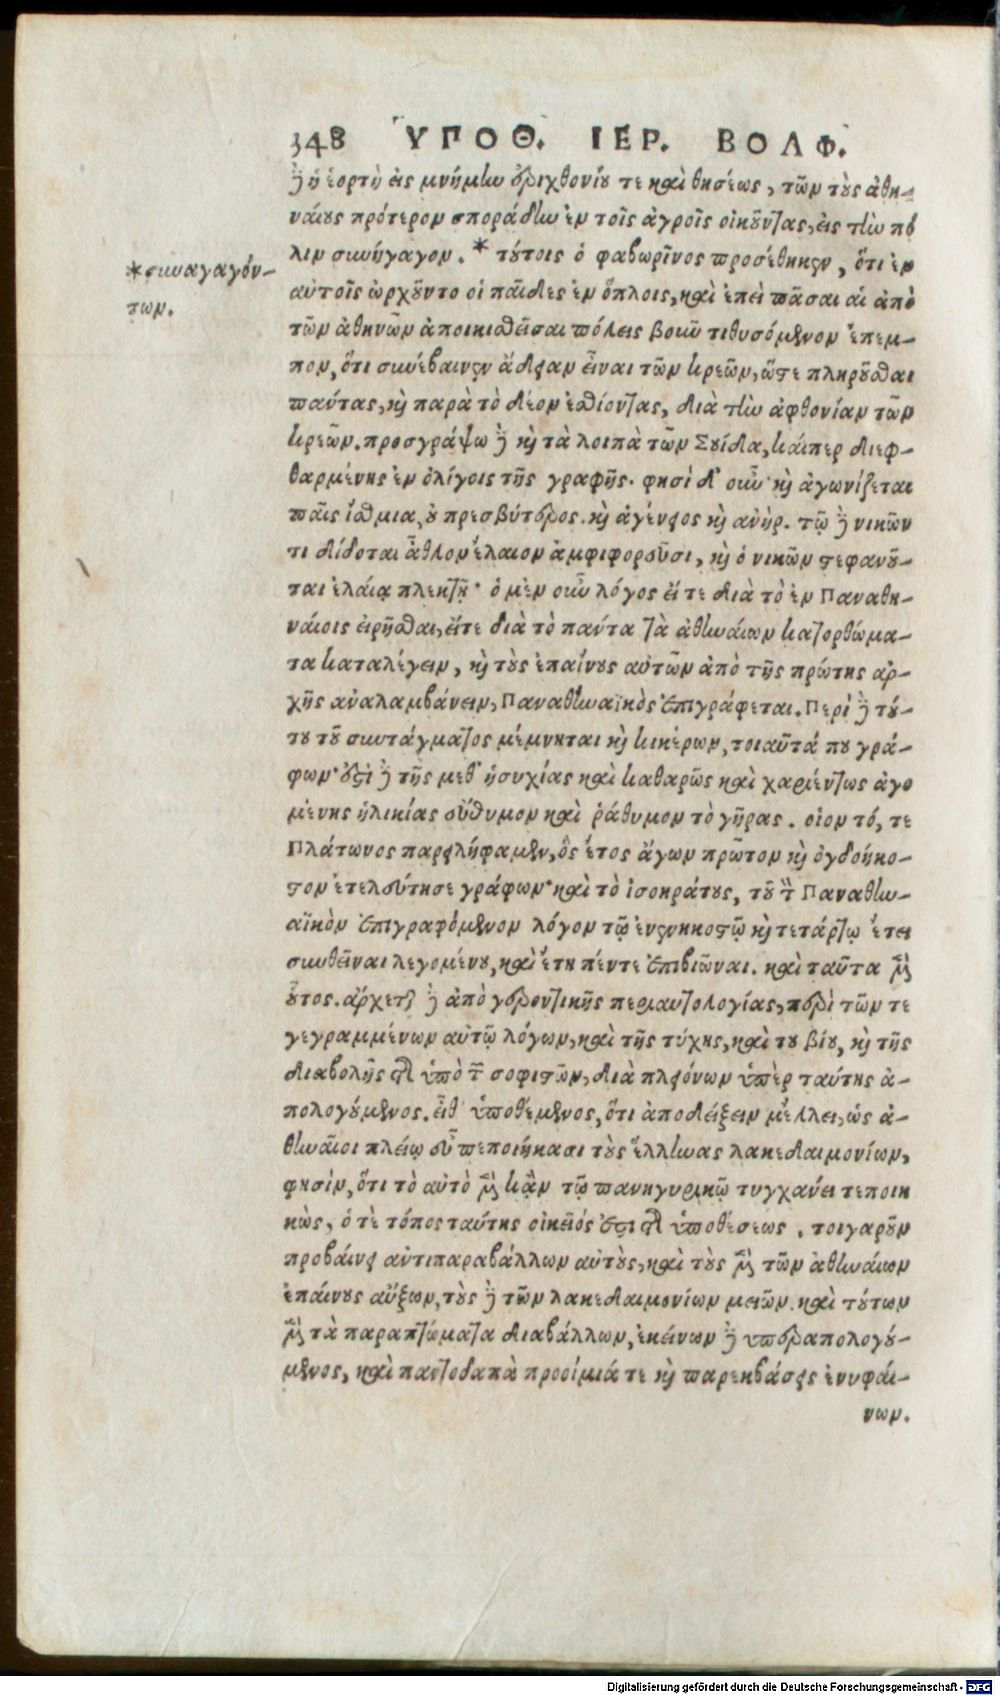 348 ΥΠΟΘ. ΙΕΡ. ΒΟΛΦ.
δὲ ἡ ἑορτὴ εἰς μνήμην ἐριχθονίου τε καὶ θησέως, τῶν τοὺς ἀθη-
ναίους πρότερον σποράδην ἐν τοῖς ἀγροῖς οἰκοῦντας, εἰς τὴν πό
λιν συνήγαγον. * τούτοις ὁ φαβωρῖνος προσέθηκεν, ὅτι ἐν
*συναγαγόν-
των.
αὐτοῖς ὠρχοῦντο οἱ παῖδες ἐν ὅπλοις, καὶ ἐπεὶ πᾶσαι αἱ ἀπὸ
τῶν ἀθηνῶν ἀποικισθεῖσαι πόλεις βοῦν τιθυσόμενον ἔπεμ-
πον, ὅτι συνέβαινεν ἄδειαν εἶναι τῶν κρεῶν, ὥστε πληροῦσθαι
πάντας, καὶ παρὰ τὸ δέον ἐσθίοντας, διὰ τὴν ἀφθονίαν τῶν
κρεῶν. προσγράψω δὲ καὶ τὰ λοιπὰ τῶν Σουίδα, καίπερ διεφ-
θαρμένης ἐν ὀλίγοις τῆς γραφῆς. φησὶ δ' οὖν· καὶ ἀγωνίζεται
παῖς ἴσθμια, οὐ πρεσβύτερος. καὶ ἀγένειος καὶ ἀνήρ. τῷ δὲ νικῶν
τι δίδοται ἆθλον ἔλαιον ἀμφιφορεῦσι, καὶ ὁ νικῶν στεφανοῦ-
ται ἐλαίᾳ πλεκτῇ· ὁ μὲν οὖν λόγος εἴτε διὰ τὸ ἐν Παναθη-
ναίοις εἰρῆσθαι, εἴτε διὰ τὸ πάντα τὰ ἀθηναίων κατορθώμα-
τα καταλέγειν, καὶ τοὺς ἐπαίνους αὐτῶν ἀπὸ τῆς πρώτης ἀρ-
χῆς ἀναλαμβάνειν, Παναθηναϊκὸς ἐπιγράφεται. Περὶ δὲ τού-
του τοῦ συντάγματος μέμνηται καὶ κικέρων, τοιαῦτά που γρά-
φων· ἔστι δὲ τῆς μεθ' ἡσυχίας καὶ καθαρῶς καὶ χαριέντως ἀγο
μένης ἡλικίας εὔθυμον καὶ ῥάθυμον τὸ γῆρας. οἷον τό, τε
Πλάτωνος παρειλήφαμεν, ὃς ἔτος ἄγων πρῶτον καὶ ὀγδοηκο-
στὸν ἐτελεύτησε γράφων· καὶ τὸ ἰσοκράτους, τοῦ τὸν Παναθην-
αϊκὸν ἐπιγραφόμενον λόγον τῷ ἐνενηκοστῷ καὶ τετάρτῳ ἔτει
συνθεῖναι λεγομένου, καὶ ἔτη πέντε ἐπιβιῶναι. καὶ ταῦτα μὲν
οὗτος. ἄρχεται δὲ ἀπὸ γεροντικῆς περιαυτολογίας, περὶ τῶν τε
γεγραμμένων αὐτῷ λόγων, καὶ τῆς τύχης, καὶ του βίου, καὶ τῆς
διαβολῆς τῆς ὑπὸ τῶν σοφιστῶν, διὰ πλειόνων ὑπὲρ ταύτης ἀ-
πολογούμενος. εἶθ' ὑποθέμενος, ὅτι ἀποδείξειν μέλλει, ὡς ἀ-
θηναῖοι πλείω εὖ πεποιήκασι τοὺς ἕλληνας λακεδαιμονίων,
φησὶν, ὅτι τὸ αὐτὸ μὲν κἂν τῷ πανηγυρικῷ τυγχάνει πεποιη
κὼς, ὁ τὲ τόπος ταύτης οἰκεῖός ἐστι τῆς ὑποθέσεως. τοιγαροῦν
προβαίνει ἀντιπαραβάλλων αὐτοὺς, καὶ τοὺς μὲν τῶν ἀθηναίων
ἐπαίνους αὔξων, τοὺς δὲ τῶν λακεδαιμονίων μειῶν. καὶ τούτων
μὲν τὰ παραπτώματα διαβάλλων, ἐκείνων δὲ ὑπεραπολογού-
μενος, καὶ παντοδαπὰ προοίμιά τε καὶ παρεκβάσεις ἐνυφαί-
νων.
Digitalisierung gefördert durch die Deutsche Forschungsgemeinschaft - DFG